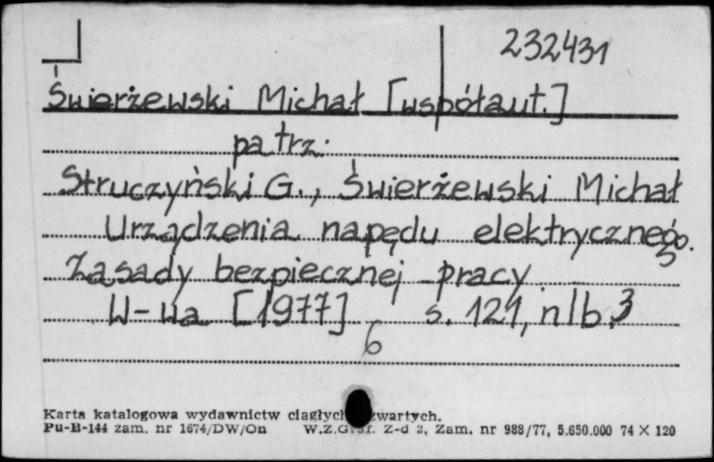 232431
Świerżewski Michał [współaut.]
patrz:
Struczyński G., Świerżewski Michał
Urządzenia napędu elektrycznego.
Zasady bezpiecznej pracy.
W-wa [1977] s. 121, nlb. 3
6
Karta katalogowa wydawnictw ciągłych zwartych.
Pu-B-144 zam. nr 1674/DW/On W.Z.Graf. Z-d 2, Zam. nr 988/77, 5.650.000 74 X 120